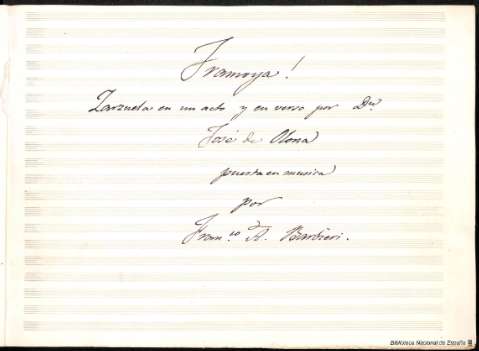 Tramoya!
Zarzuela en un acto y en verso por Dn.
José de Olona
puesta en musica
por
Fran.co A. Barbieri.
Biblioteca Nacional de España